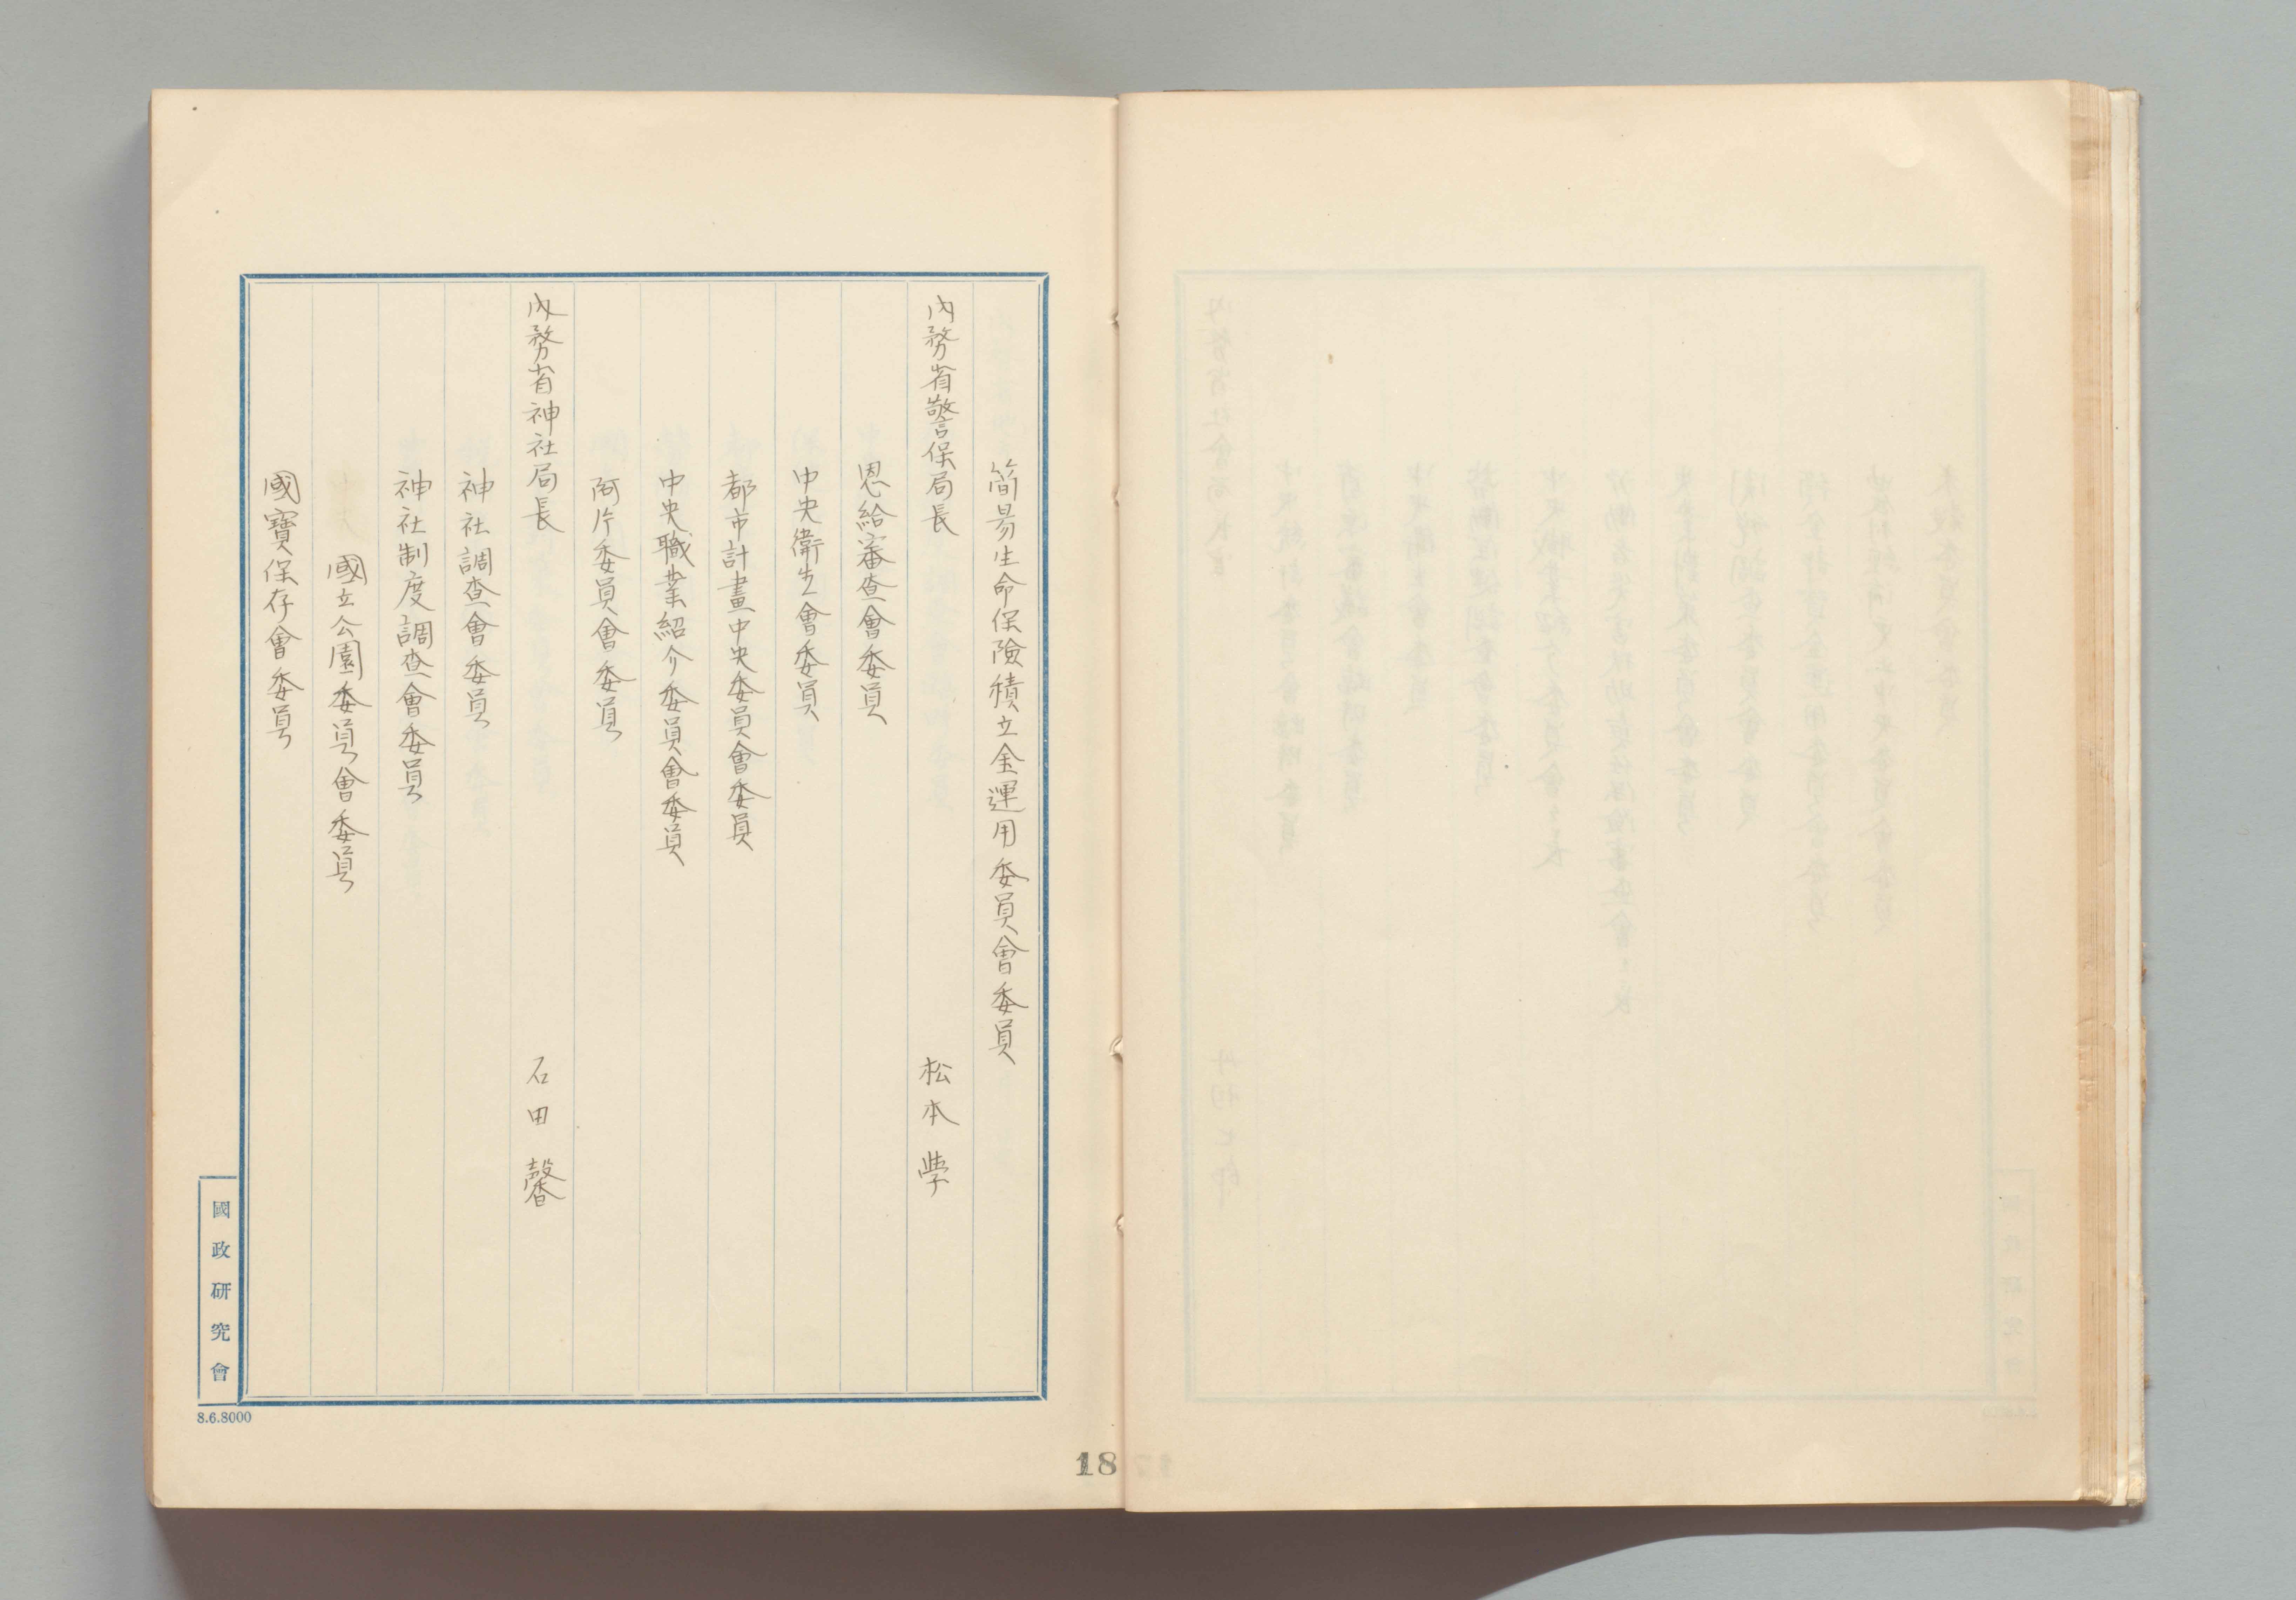 簡易生命保險積立金運用委員會委員
內務省警保局長　松本學
恩給審查會委員
中央衛生會委員
都市計畫中央委員會委員
中央職業紹介委員會委員
阿片委員會委員
內務省神社局長　石田馨
神社調查會委員
神社制度調查會委員
國立公園委員會委員
國寶保存會委員
國政研究會
8.6.8000
18